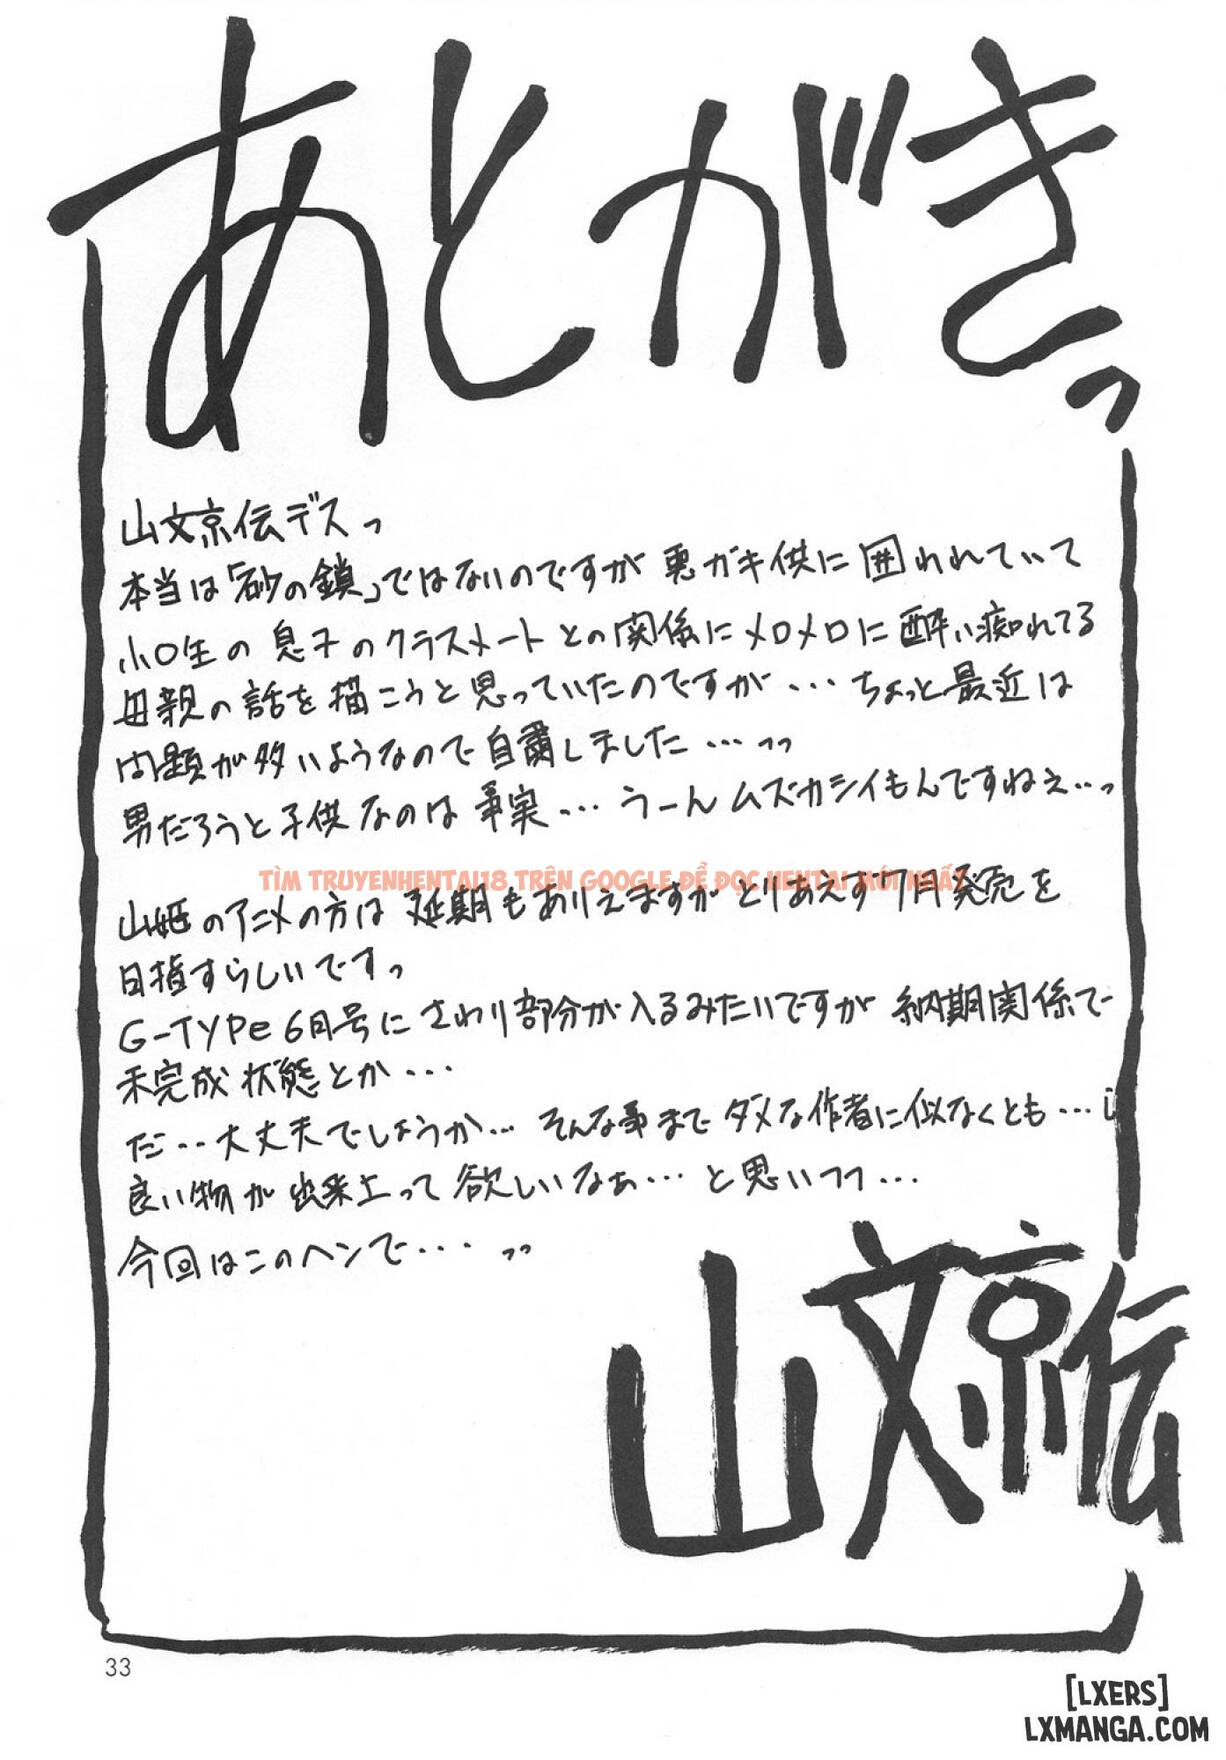 あとがきっ
山文京伝デスっ
本当は「砂の鎖」ではないのですが悪ガキ供に囲われていて
小〇生の息子のクラスメートとの関係にメロメロに酔い痴れてる
母親の話を描こうと思っていたのですが...ちょっと最近は
問題が多いようなので自粛しました...っっ
男だろうと子供なのは事実...うーんムズカシイもんですねぇ...っ
TÌM TRUYENHENTAI18 TRÊN GOOGLE ĐỂ ĐỌC HENTAI MỚI NHẤT
山姫のアニメの方は延期もありえますがとりあえず7月発売を
目指すらしいですっ
G-TYPe 6月号にさわり部分が入るみたいですが納期関係で
未完成状態とか...
だ...大丈夫でしょうか...そんな事までダメな作者に似なくとも...
良い物が出来上って欲しいなぁ...と思いつつ...
今回はこのヘンで...っっ
山文京伝
33
[LXERS]
LXMANGA.COM